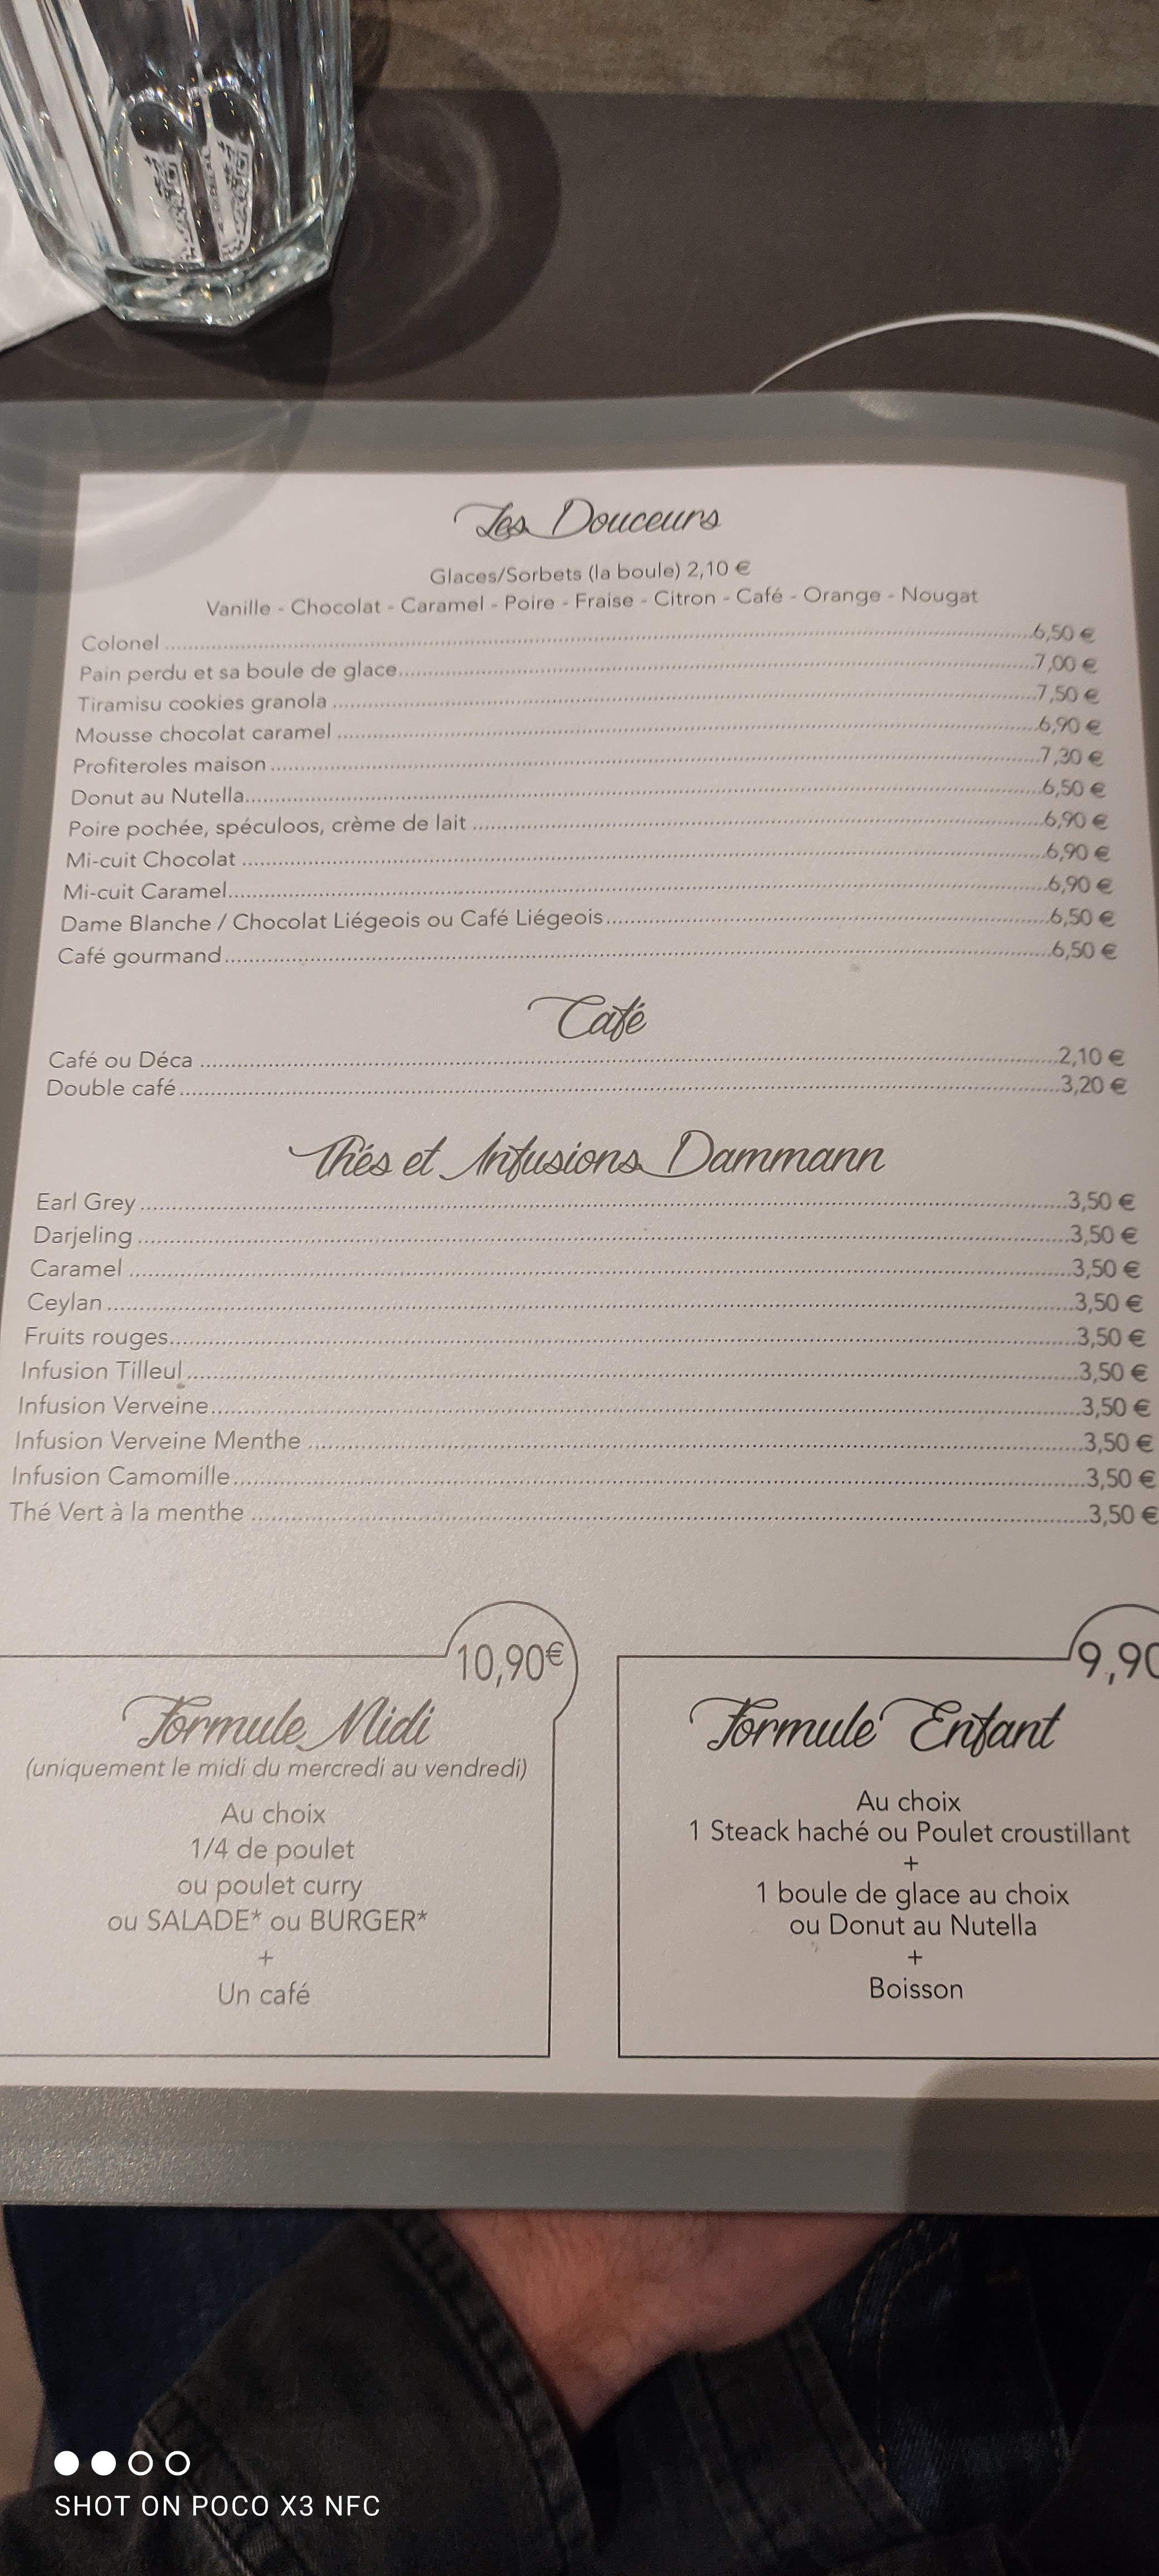 Les Douceurs
Glaces/Sorbets (la boule) 2,10 €
Vanille - Chocolat - Caramel - Poire - Fraise - Citron - Café - Orange - Nougat
Colonel ........ 6,50 €
Pain perdu et sa boule de glace ........ 7,00 €
Tiramisu cookies granola ........ 7,50 €
Mousse chocolat caramel ........ 6,90 €
Profiteroles maison ........ 7,30 €
Donut au Nutella ........ 6,50 €
Poire pochée, spéculoos, crème de lait ........ 6,90 €
Mi-cuit Chocolat ........ 6,90 €
Mi-cuit Caramel ........ 6,90 €
Dame Blanche / Chocolat Liégeois ou Café Liégeois ........ 6,50 €
Café gourmand ........ 6,50 €
Café
Café ou Déca ........ 2,10 €
Double café ........ 3,20 €
Thés et Infusions Dammann
Earl Grey ........ 3,50 €
Darjeling ........ 3,50 €
Caramel ........ 3,50 €
Ceylan ........ 3,50 €
Fruits rouges ........ 3,50 €
Infusion Tilleul ........ 3,50 €
Infusion Verveine ........ 3,50 €
Infusion Verveine Menthe ........ 3,50 €
Infusion Camomille ........ 3,50 €
Thé Vert à la menthe ........ 3,50 €
10,90€
Formule Midi
(uniquement le midi du mercredi au vendredi)
Au choix
1/4 de poulet
ou poulet curry
ou SALADE* ou BURGER*
+
Un café
9,90
Formule Enfant
Au choix
1 Steack haché ou Poulet croustillant
+
1 boule de glace au choix
ou Donut au Nutella
+
Boisson
SHOT ON POCO X3 NFC